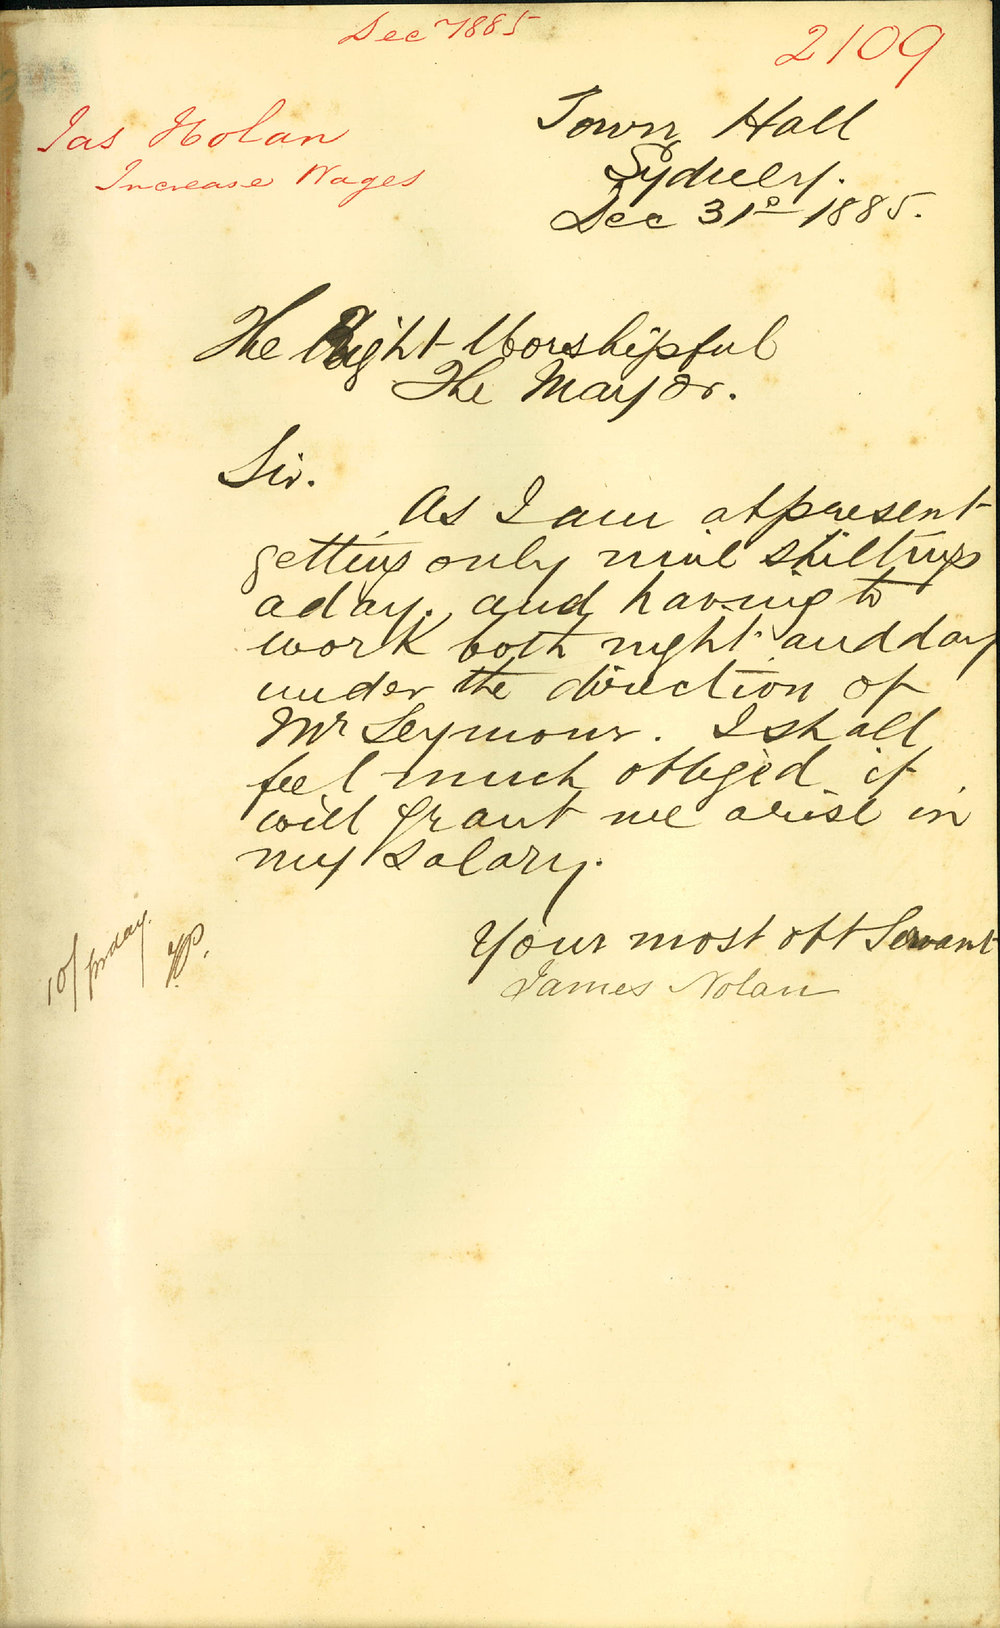 Dec 1885
2109
Jas Nolan
Increase Wages
Town Hall
Sydney.
Dec 31st 1885.
The Right Worshipful
The Mayor.
Sir.
As I am at present
getting only nine shillings
a day. and having to
work both night and day
under the direction of
Mr Seymour. I shall
feel much obliged if
will grant me a rise in
my salary.
Your most obt Servant
James Nolan
10/ per day.